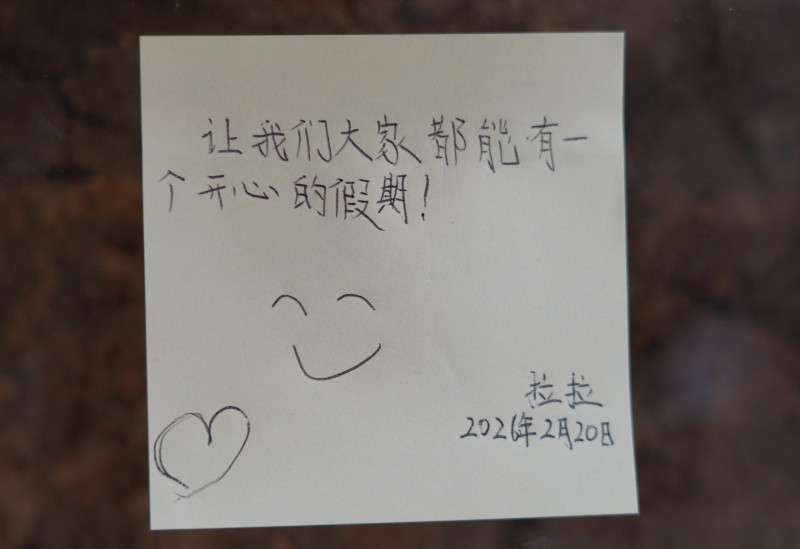 让我们大家都能有一
个开心的假期!
拉拉
2026年2月20日